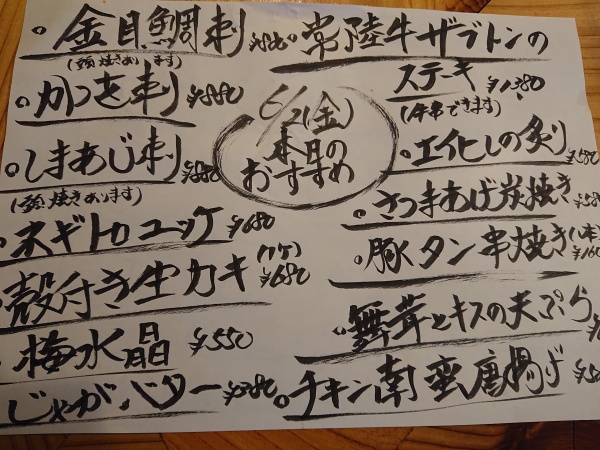 6/2(金)
本日の
おすすめ
金目鯛刺
(頭焼きあります)
かつを刺 ¥880
しまあじ刺 ¥880
(頭焼きあります)
ネギトロユッケ ¥680
殻付き生カキ (1ケ) ¥680
梅水晶 ¥550
じゃがバター ¥380
常陸牛ザブトンの
ステーキ ¥1,380
(牛串できます)
エイヒレの炙り ¥580
さつまあげ炭焼き ¥580
豚タン串焼き (1本) ¥160
舞茸とキスの天ぷら
チキン南蛮唐揚げ